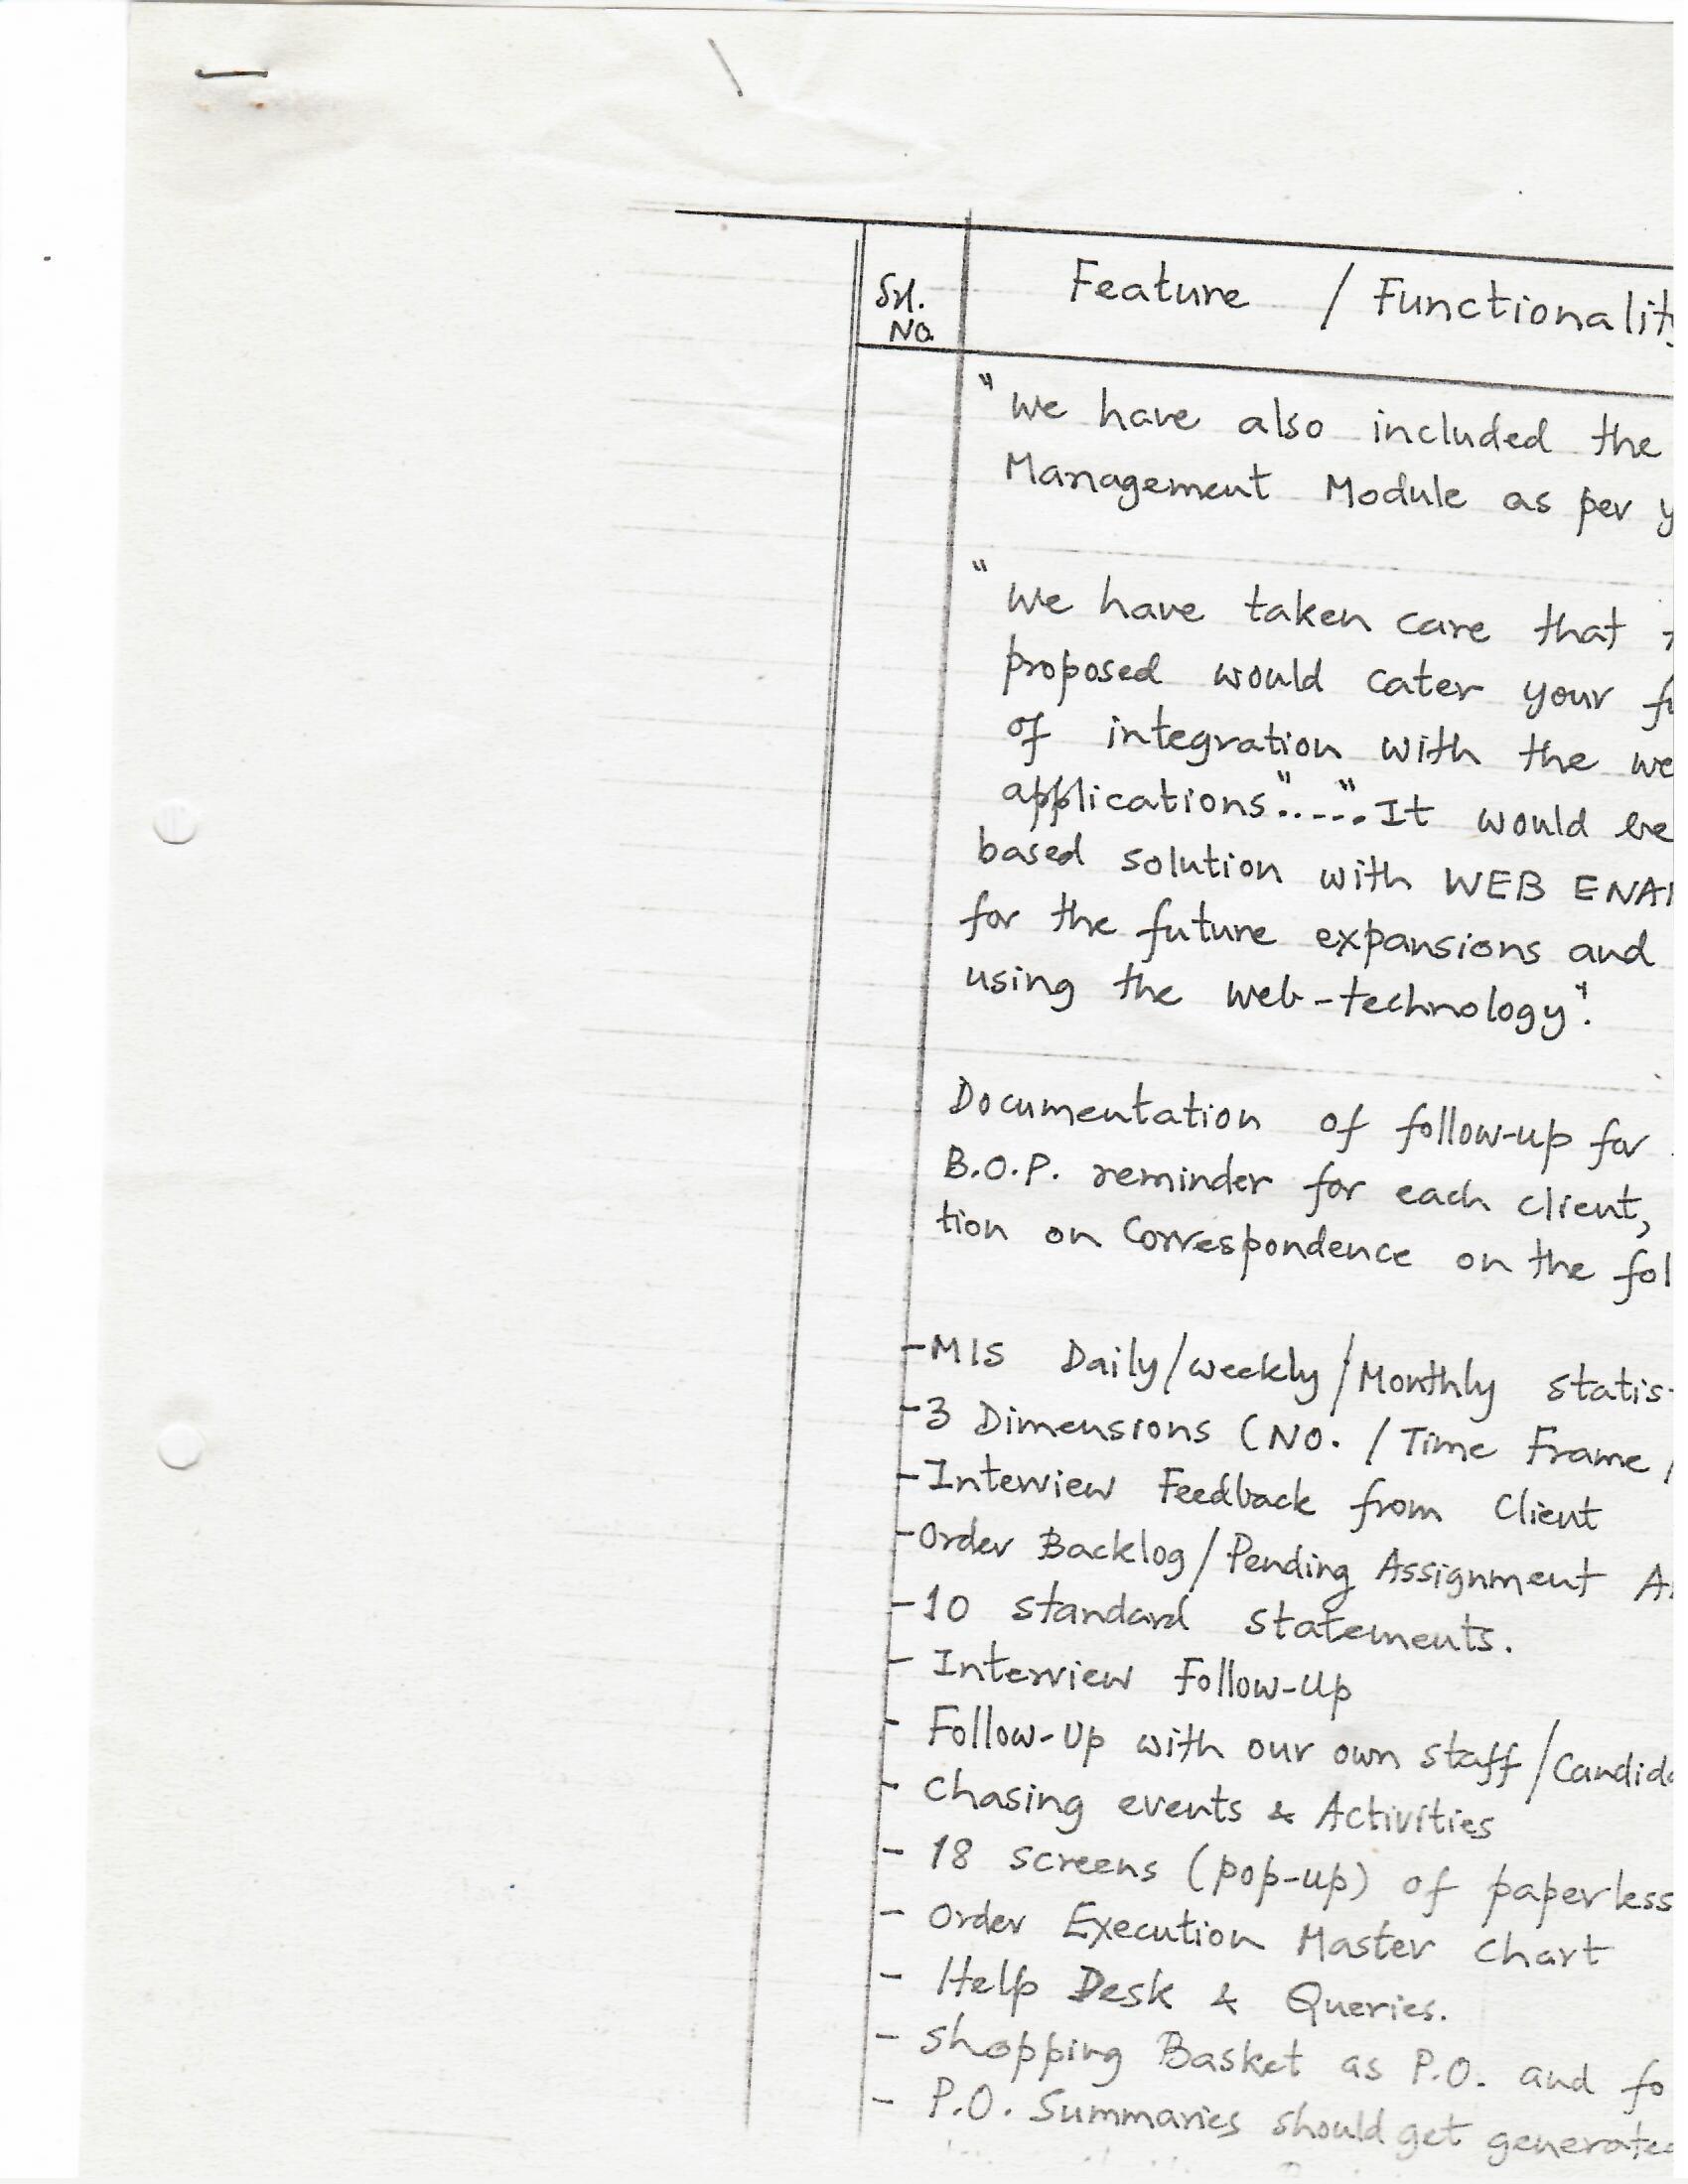 Srl.
No.
Feature / Functionalit
"We have also included the
Management Module as per y
"We have taken care that
proposed would cater your fu
of integration with the we
applications"....."It would be
based solution with WEB ENA
for the future expansions and
using the web-technology".
Documentation of follow-up for
B.O.P. reminder for each client,
tion on Correspondence on the fol
-MIS Daily/weekly/Monthly statis
-3 Dimensions (NO. / Time Frame /
-Interview Feedback from Client
-Order Backlog/Pending Assignment A
-10 standard statements.
- Interview Follow-Up
- Follow-Up with our own staff/Candid
- Chasing events & Activities
- 18 screens (pop-up) of paperless
- Order Execution Master Chart
- Help Desk & Queries.
- Shopping Basket as P.O. and fo
- P.O. Summaries should get generate